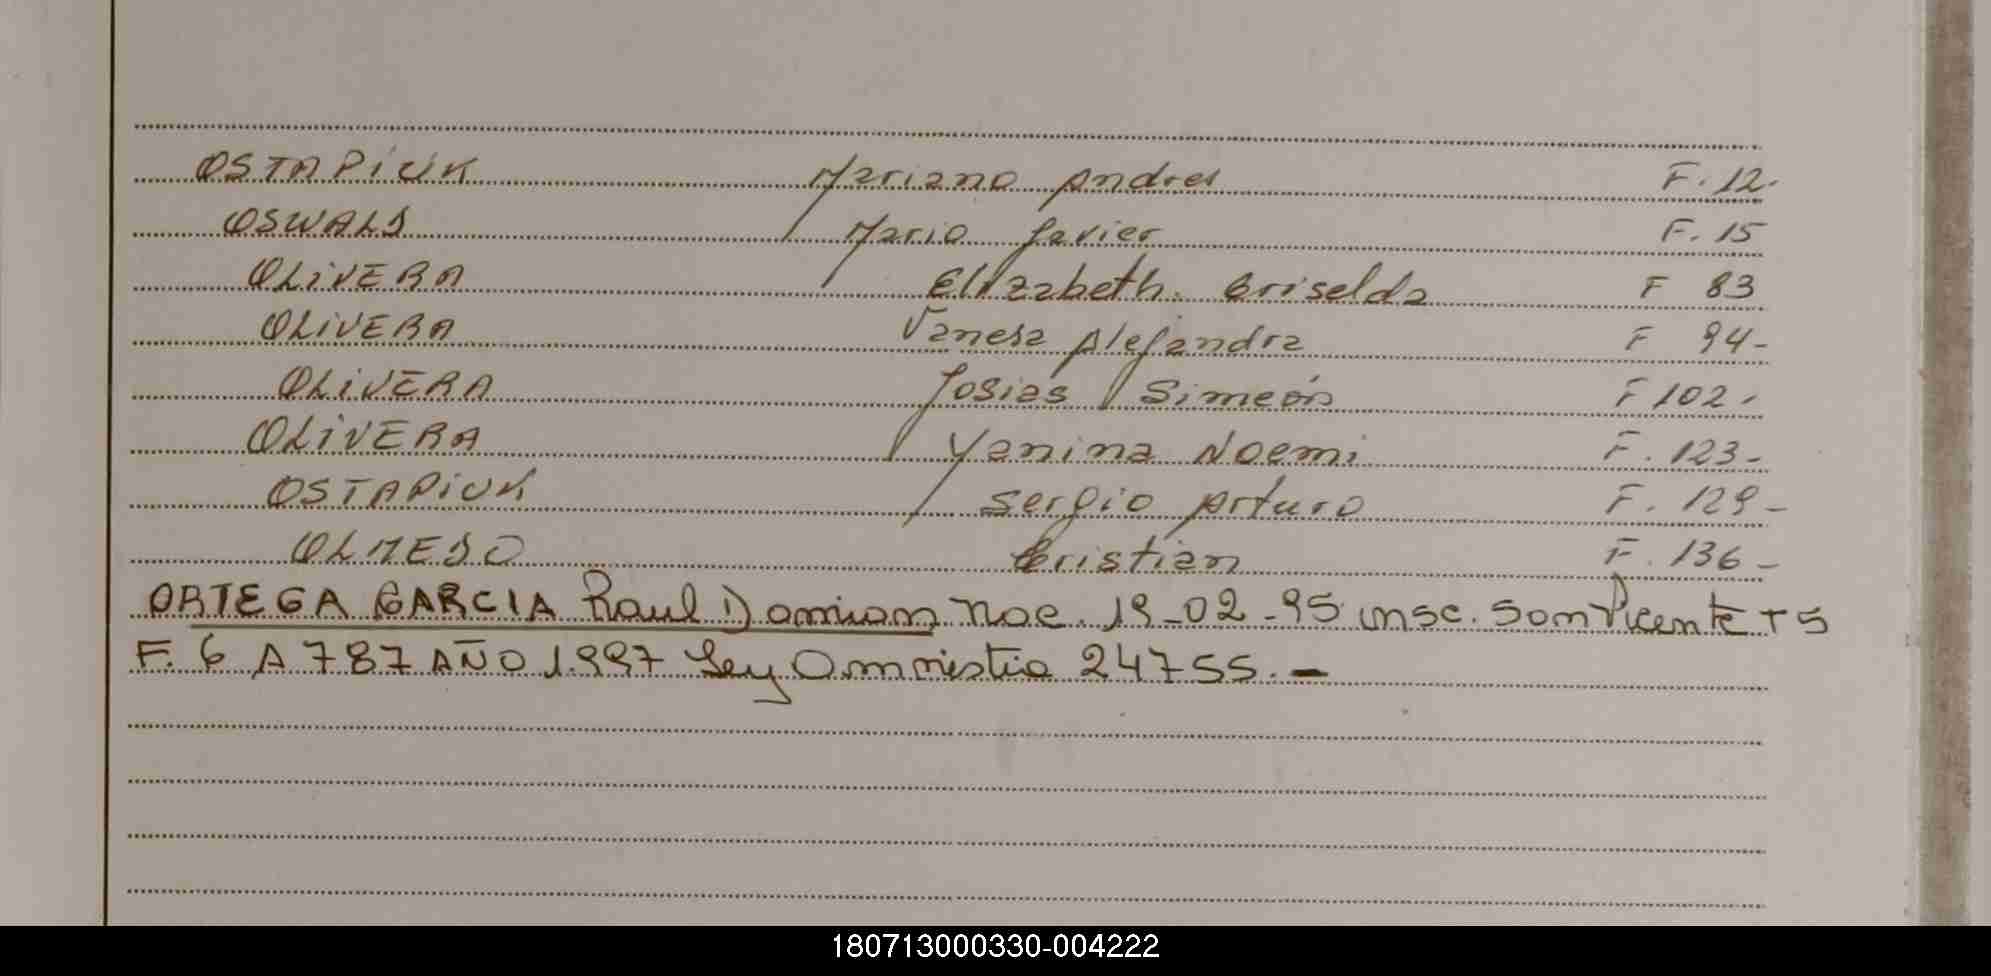 OSTAPIUK Mariano Andres F. 12.
OSWALD Mario Javier F. 15
OLIVERA Elizabeth Griselda F 83
OLIVERA Vanesa Alejandra F 94-
OLIVERA Josias Simeón F 102.
OLIVERA Yanina Noemi F. 123-
OSTAPIUK Sergio Arturo F. 129-
OLMEDO Cristian F. 136-
ORTEGA GARCIA Raul Damian Nac. 19-02-95 insc. San Vicente T 5
F. 6 A 787 AÑO 1.997 Ley Amnistia 24755.-
180713000330-004222